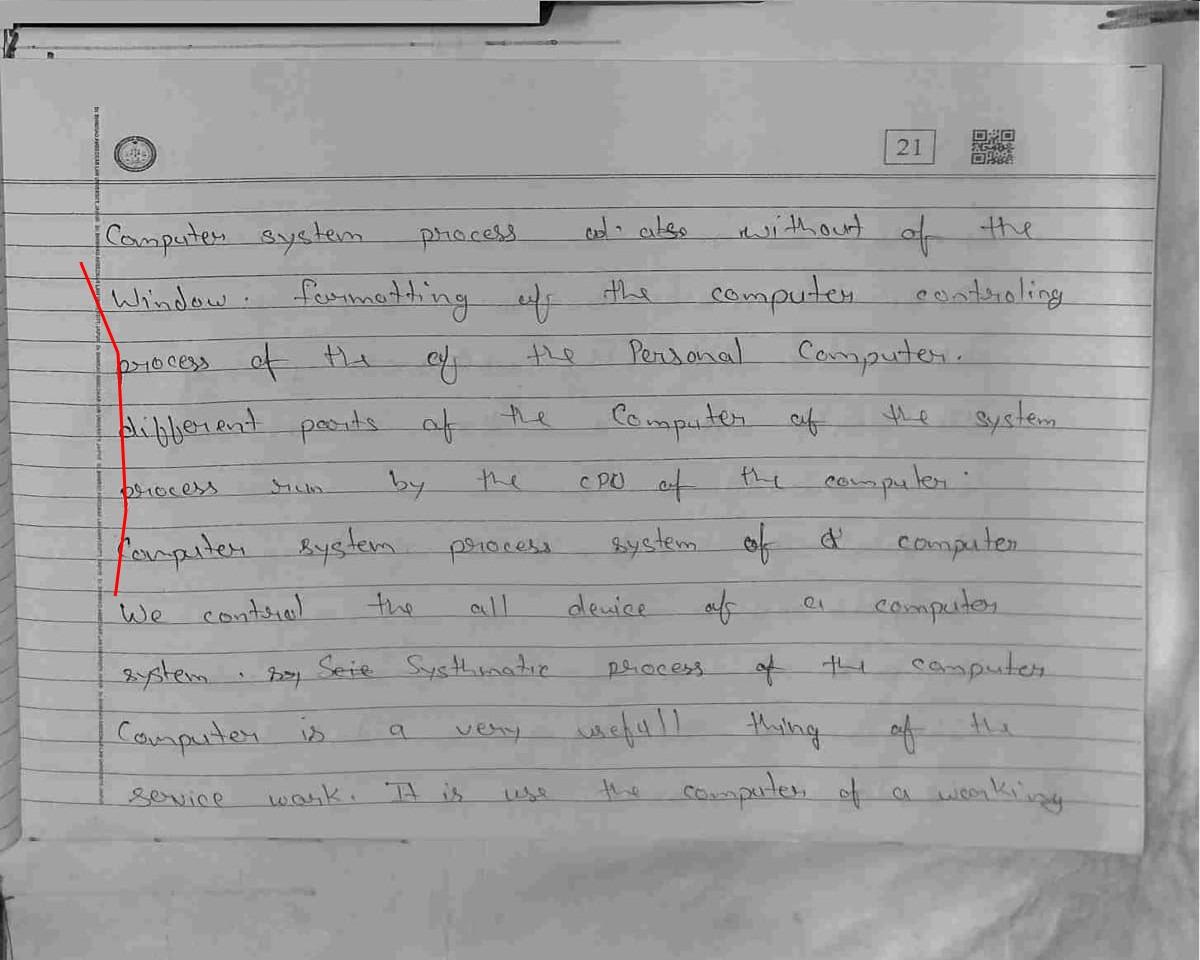 21
Computer system process also without of the
Window. formatting of the computer controling
process of the of the Personal Computer.
different parts of the Computer of the system
process run by the CPU of the computer.
Computer system process system of a computer
We control the all device of a computer
system. Systhmatic process of the computer
Computer is a very usefull thing of the
service work. It is use the computer of a working